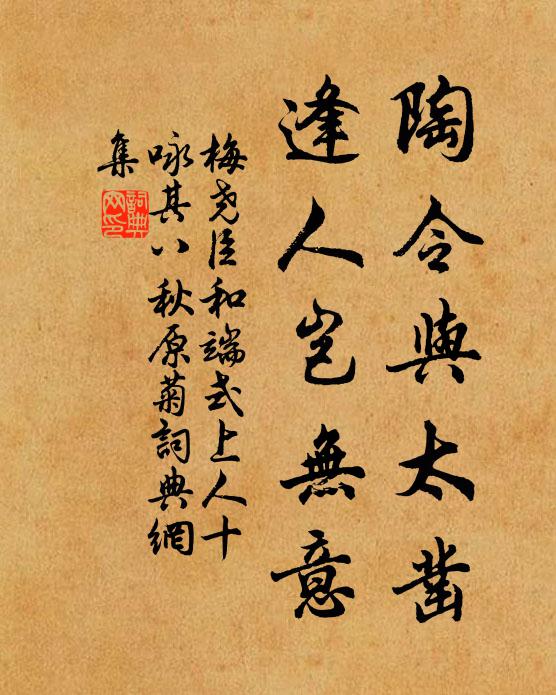 陶令與太凿
逢人岂無意
梅尧臣和端式上人十
咏其八秋原菊詞典網
集
詞典網印